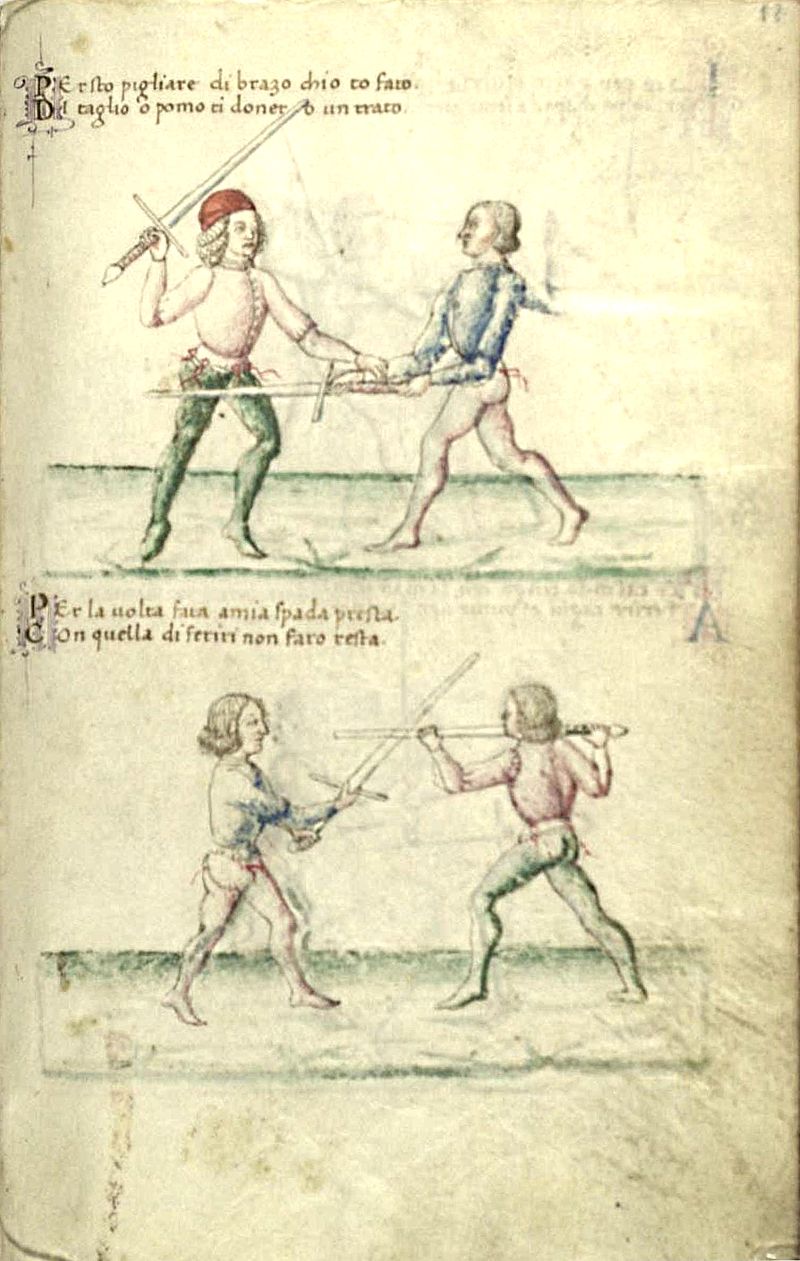 PEr sto pigliare di brazo chio to fato.
DI taglio o pomo ti donero un trato.
PEr la uolta fata a mia spada presta.
COn quella di feriri non faro resta.